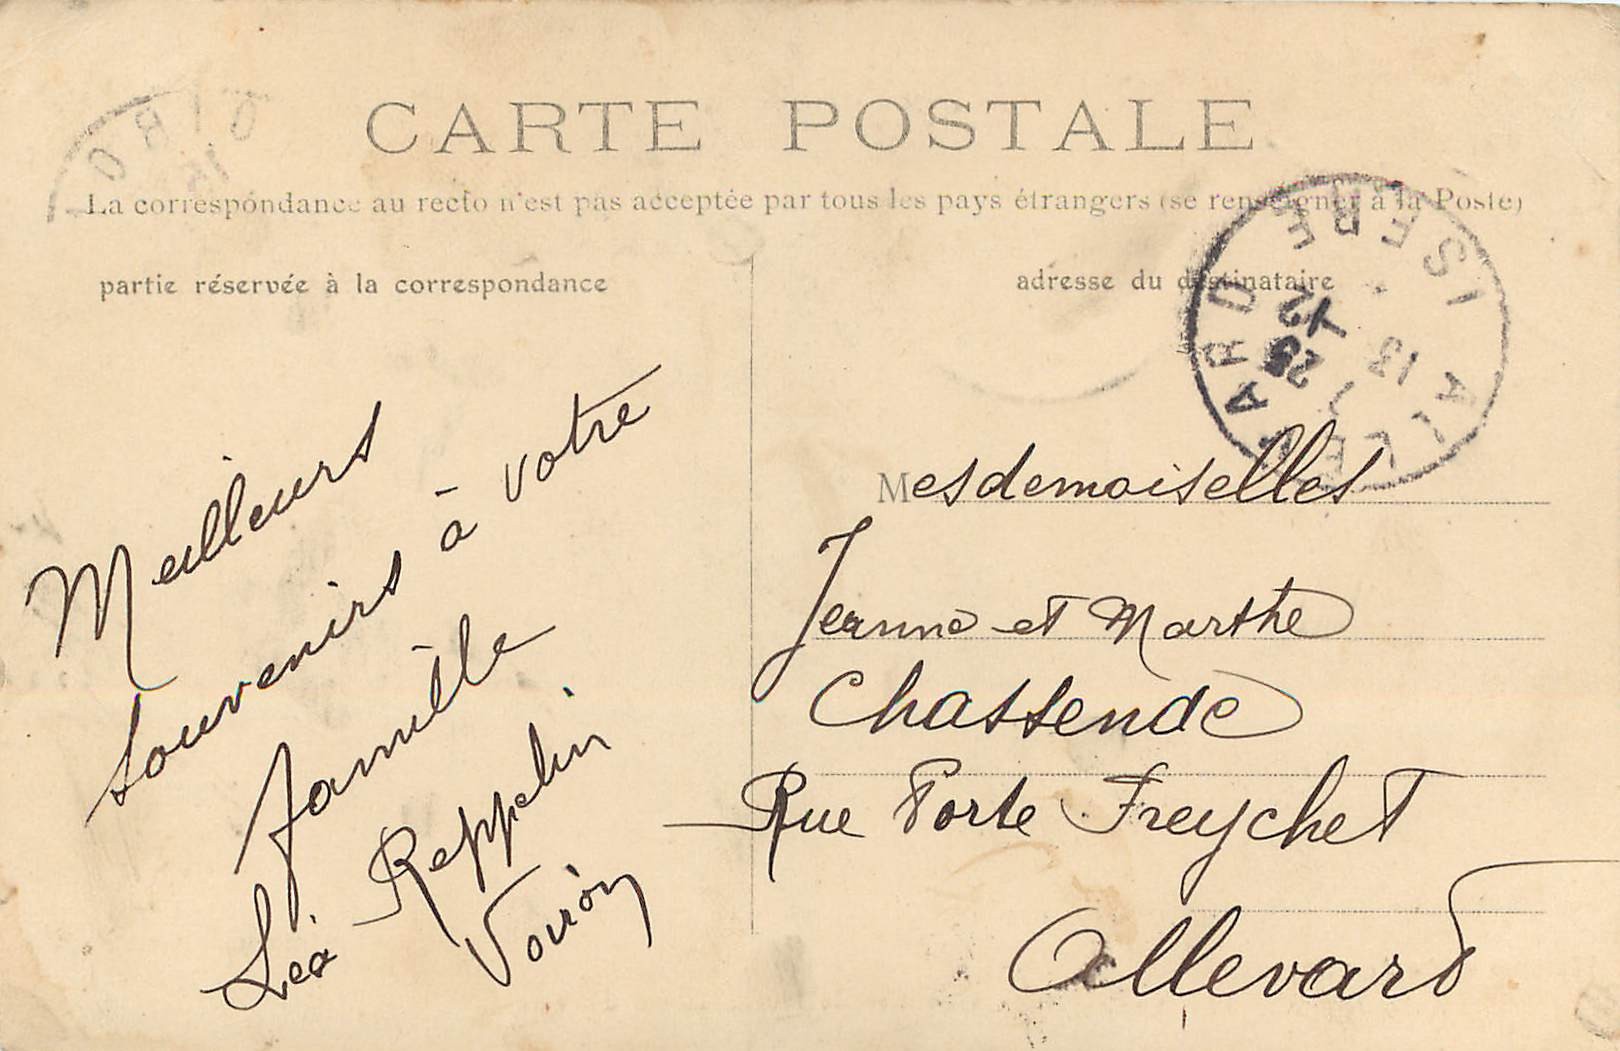 CARTE POSTALE
La correspondance au recto n'est pas acceptée par tous les pays étrangers (se renseigner à la Poste)
partie réservée à la correspondance
adresse du destinataire
ALLEVARD
ISERE
13
25
12
Meilleurs
souvenirs à votre
famille
Léa Reppelin
Voiron
Mesdemoiselles
Jeanne et Marthe
Chassende
Rue Porte Freychet
Allevard